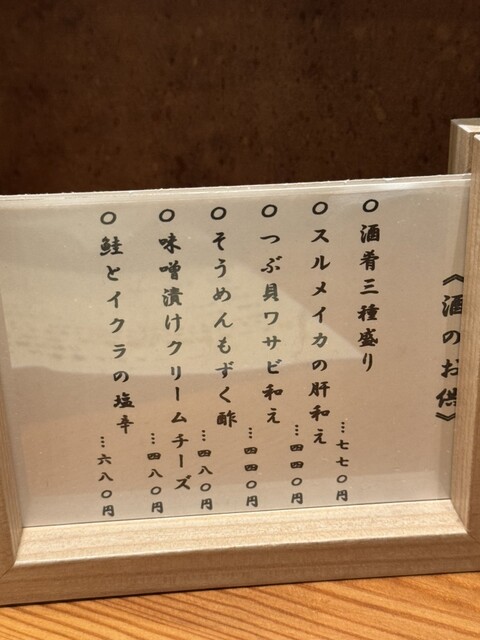 《酒のお供》
○酒肴三種盛り …七七〇円
○スルメイカの肝和え …四四〇円
○つぶ貝ワサビ和え …四四〇円
○そうめんもずく酢 …四八〇円
○味噌漬けクリームチーズ …四八〇円
○鮭とイクラの塩辛 …六八〇円